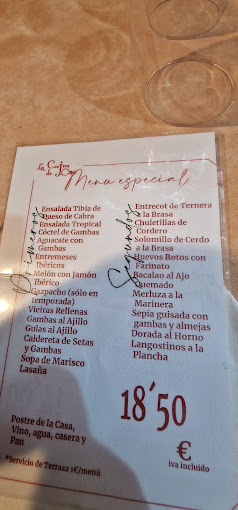 Menu especial
Primeros
Ensalada Tibia de
Queso de Cabra
Ensalada Tropical
Cóctel de Gambas
Aguacate con
Gambas
Entremeses
Ibéricos
Melón con Jamón
Ibérico
Gazpacho (sólo en
temporada)
Vieiras Rellenas
Gambas al Ajillo
Gulas al Ajillo
Caldereta de Setas
y Gambas
Sopa de Marisco
Lasaña
Segundos
Entrecot de Ternera
a la Brasa
Chuletillas de
Cordero
Solomillo de Cerdo
a la Brasa
Huevos Rotos con
Farinato
Bacalao al Ajo
Quemado
Merluza a la
Marinera
Sepia guisada con
gambas y almejas
Dorada al Horno
Langostinos a la
Plancha
18´50
€
iva incluido
Postre de la Casa,
Vino, agua, casera y
Pan
*Servicio de Terraza 1€/menú